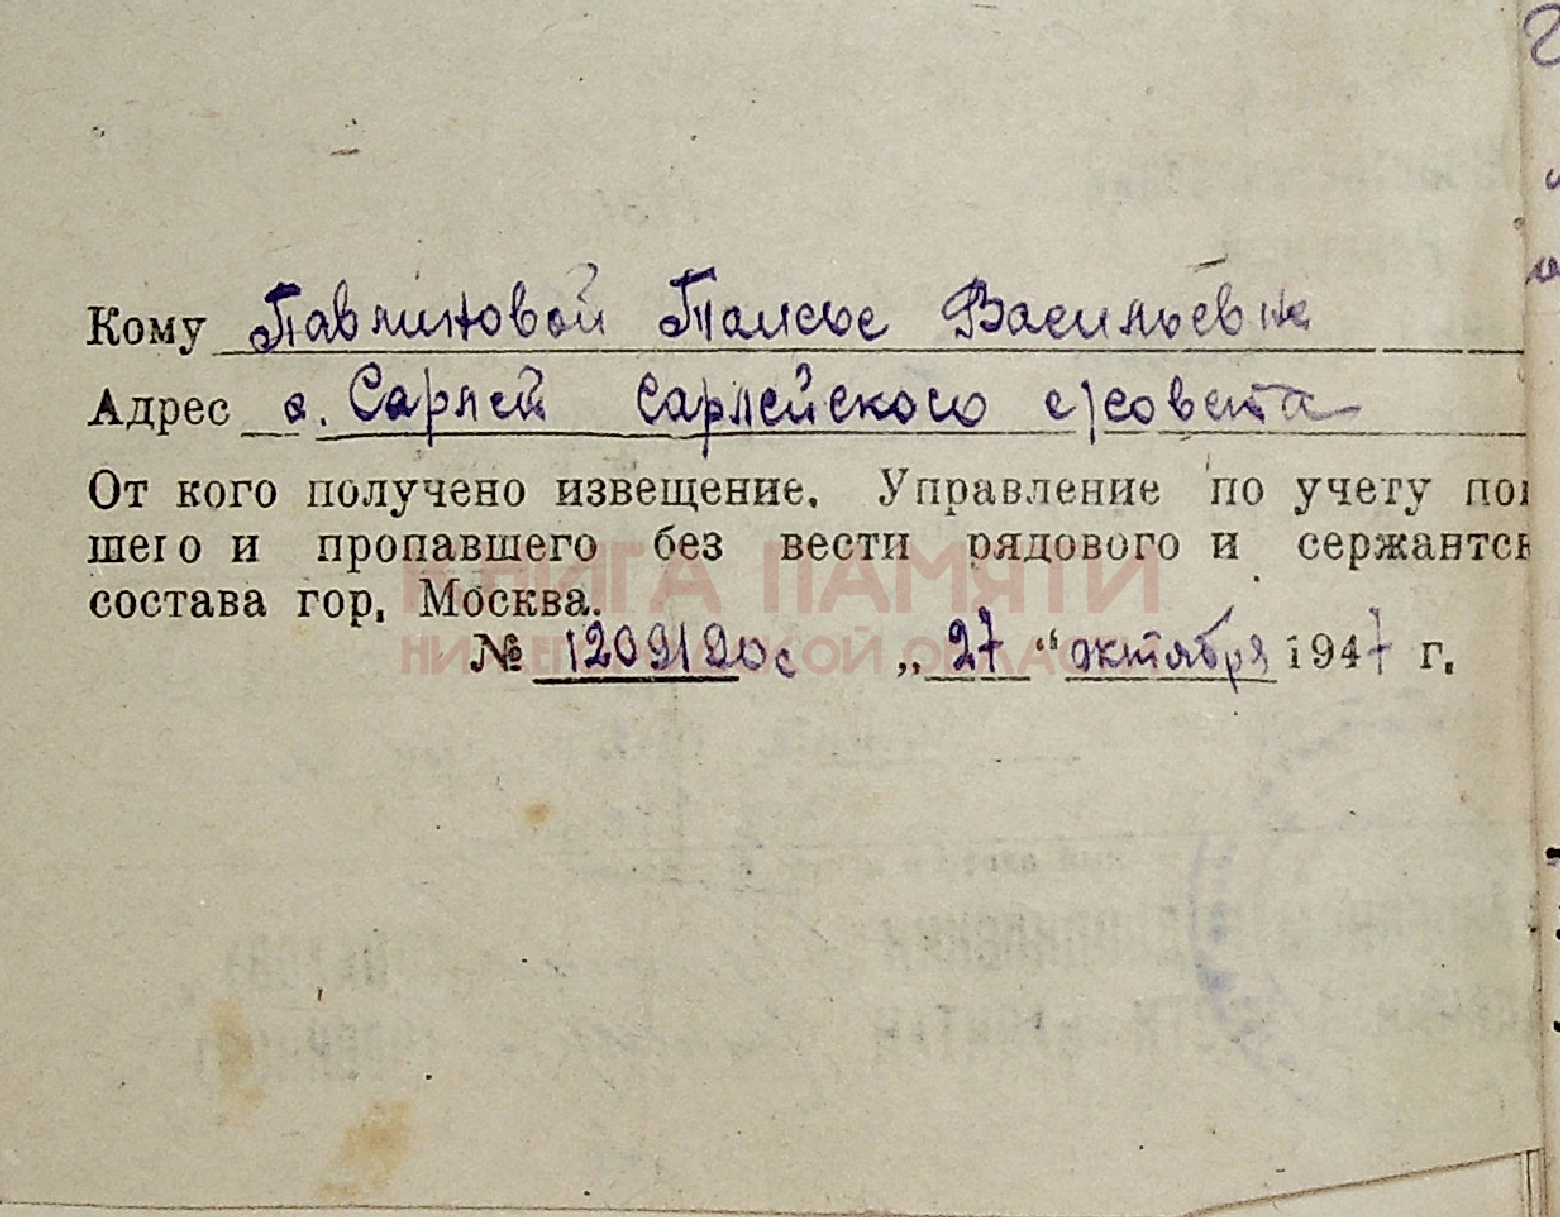 Кому Павлиновой Таисье Васильевне
Адрес с. Сарлей Сарлейского с/совета
От кого получено извещение. Управление по учету пог
шего и пропавшего без вести рядового и сержантск
состава гор. Москва.
КНИГА ПАМЯТИ
НИЖЕГОРОДСКОЙ ОБЛАСТИ
№ 1209120с „27“ октября 1947 г.